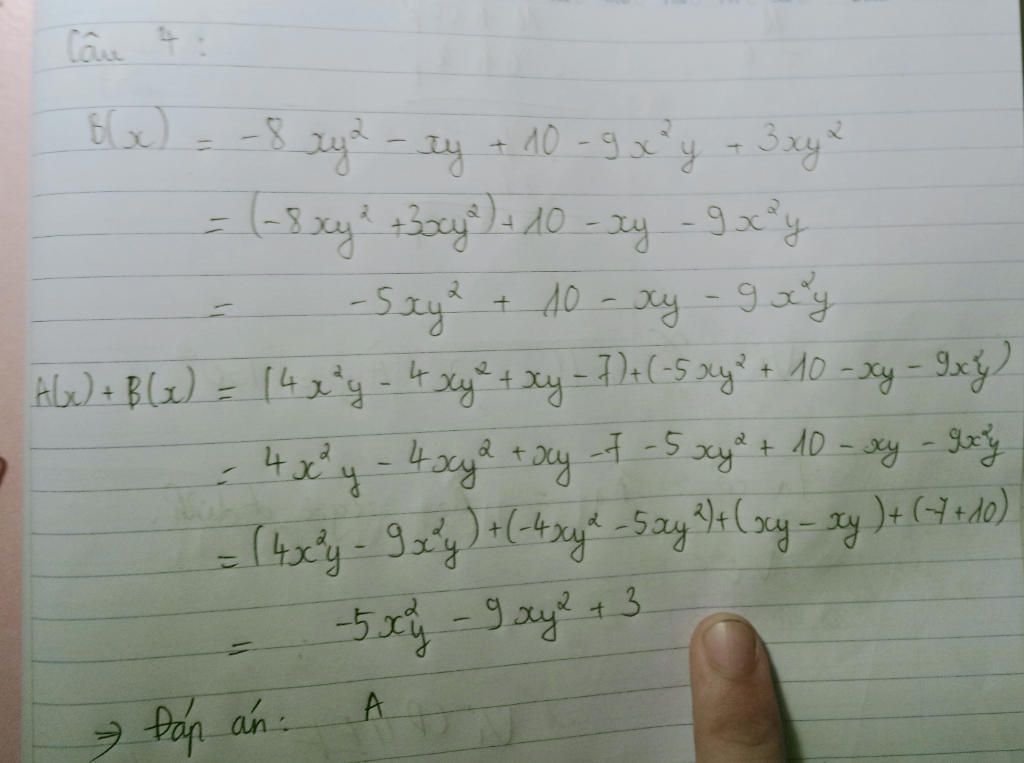 Câu 4 :
B(x) = -8xy² - xy + 10 - 9x²y + 3xy²
= (-8xy² + 3xy²) + 10 - xy - 9x²y
= -5xy² + 10 - xy - 9x²y
A(x) + B(x) = (4x²y - 4xy² + xy - 7) + (-5xy² + 10 - xy - 9x²y)
= 4x²y - 4xy² + xy - 7 - 5xy² + 10 - xy - 9x²y
= (4x²y - 9x²y) + (-4xy² - 5xy²) + (xy - xy) + (-7 + 10)
= -5x²y - 9xy² + 3
⇒ Đáp án : A